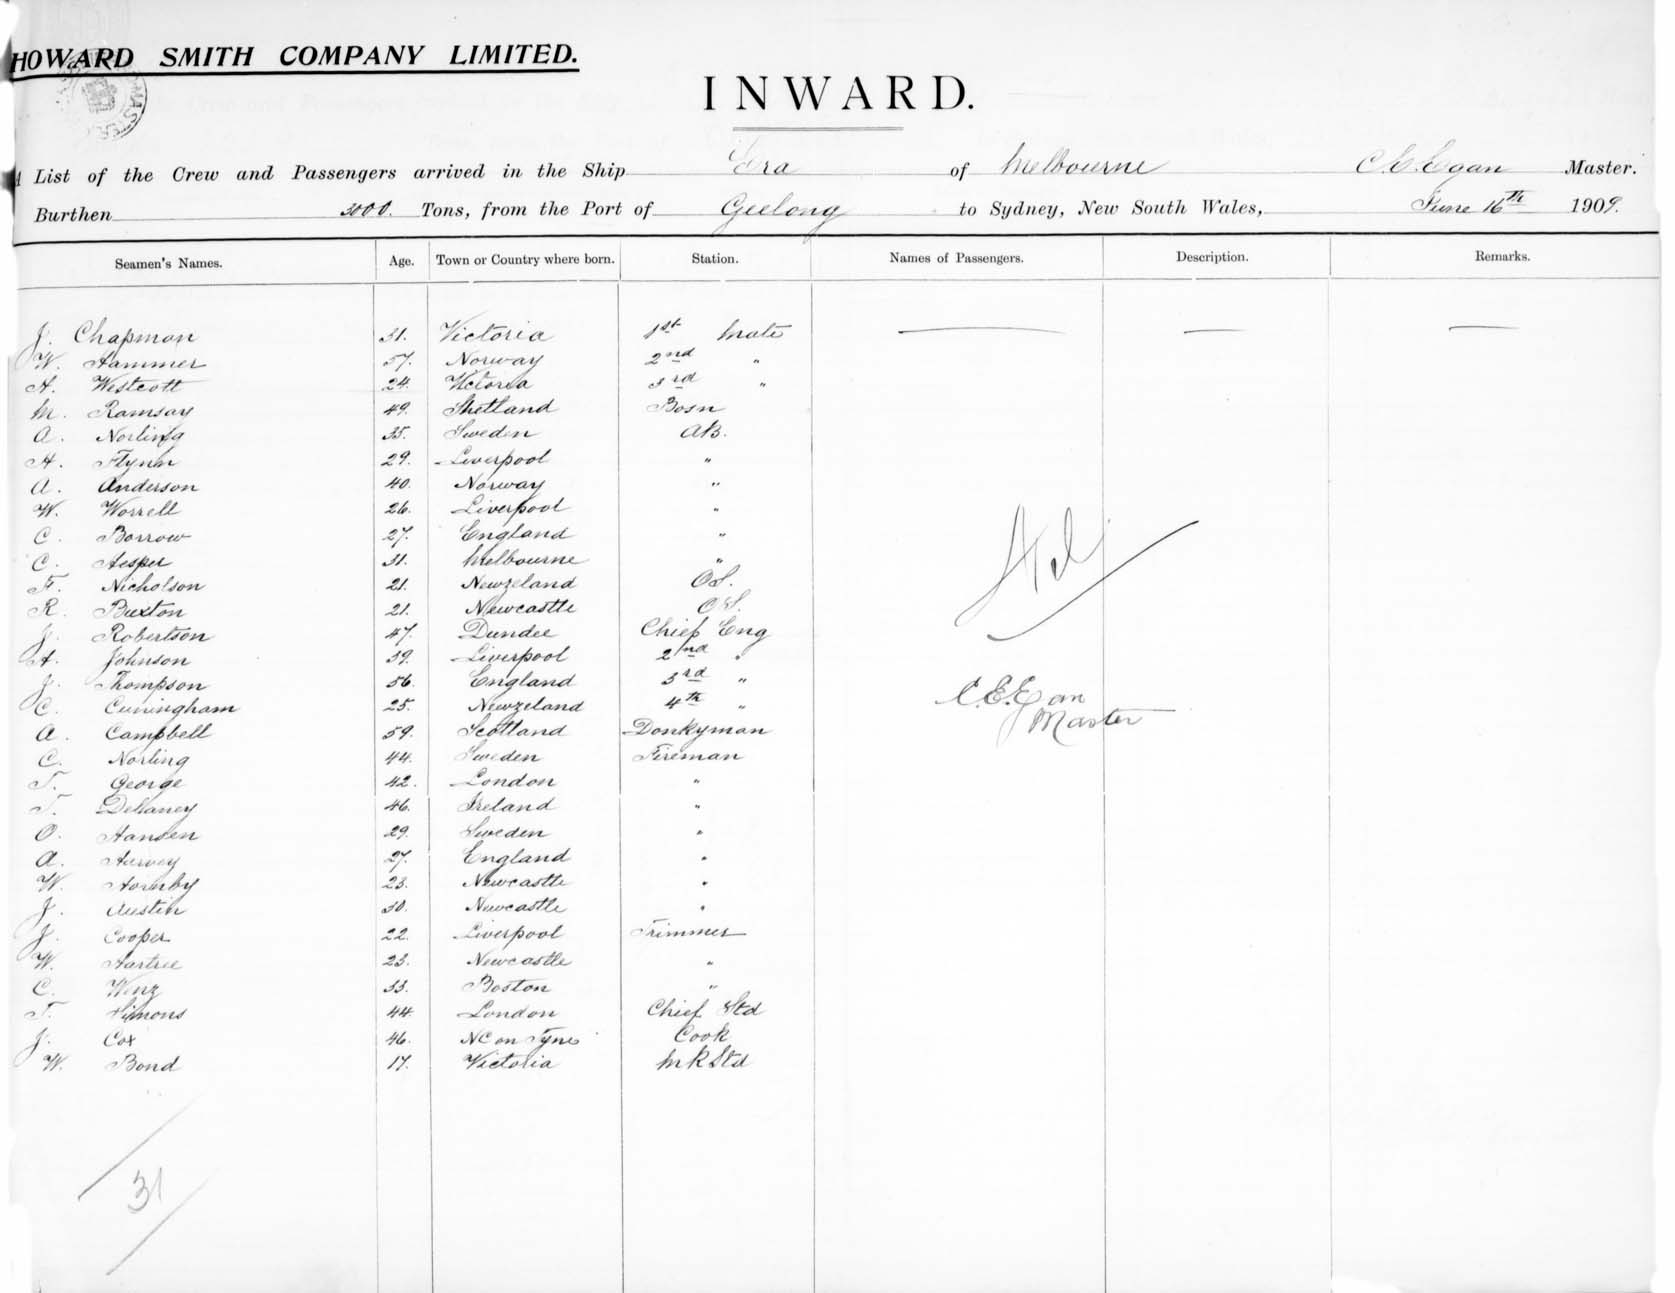 HOWARD SMITH COMPANY LIMITED.
INWARD.
A List of the Crew and Passengers arrived in the Ship Era of Melbourne C.E. Egan Master.
Burthen 3000. Tons, from the Port of Geelong to Sydney, New South Wales, June 16th 1909.
Seamen's Names. Age. Town or Country where born. Station. Names of Passengers. Description. Remarks.
J. Chapman 31. Victoria 1st Mate
W. Hammer 57. Norway 2nd "
H. Westcott 24. Victoria 3rd "
M. Ramsay 49. Shetland Bosn
A. Norling 35. Sweden AB.
H. Flynn 29. Liverpool "
A. Anderson 40. Norway "
W. Worrell 26. Liverpool "
C. Borrow 27. England "
C. Hesper 31. Melbourne "
F. Nicholson 21. Newzeland OS.
R. Buxton 21. Newcastle OS.
J. Robertson 47. Dundee Chief Eng
H. Johnson 39. Liverpool 2nd "
J. Thompson 56. England 3rd "
C. Cuningham 25. Newzeland 4th "
C.E. Egan
Master
A. Campbell 59. Scotland Donkyman
C. Norling 44. Sweden Fireman
T. George 42. London "
T. Dellaney 46. Ireland "
O. Hansen 29. Sweden "
A. Harvey 27. England "
W. Hornby 23. Newcastle "
J. Austin 30. Newcastle "
J. Cooper 22. Liverpool Trimmer
W. Hartree 23. Newcastle "
C. Wenz 33. Boston "
T. Simons 44. London Chief Std
J. Cox 46. NC on Tyne Cook
W. Bond 17. Victoria MRStd
31